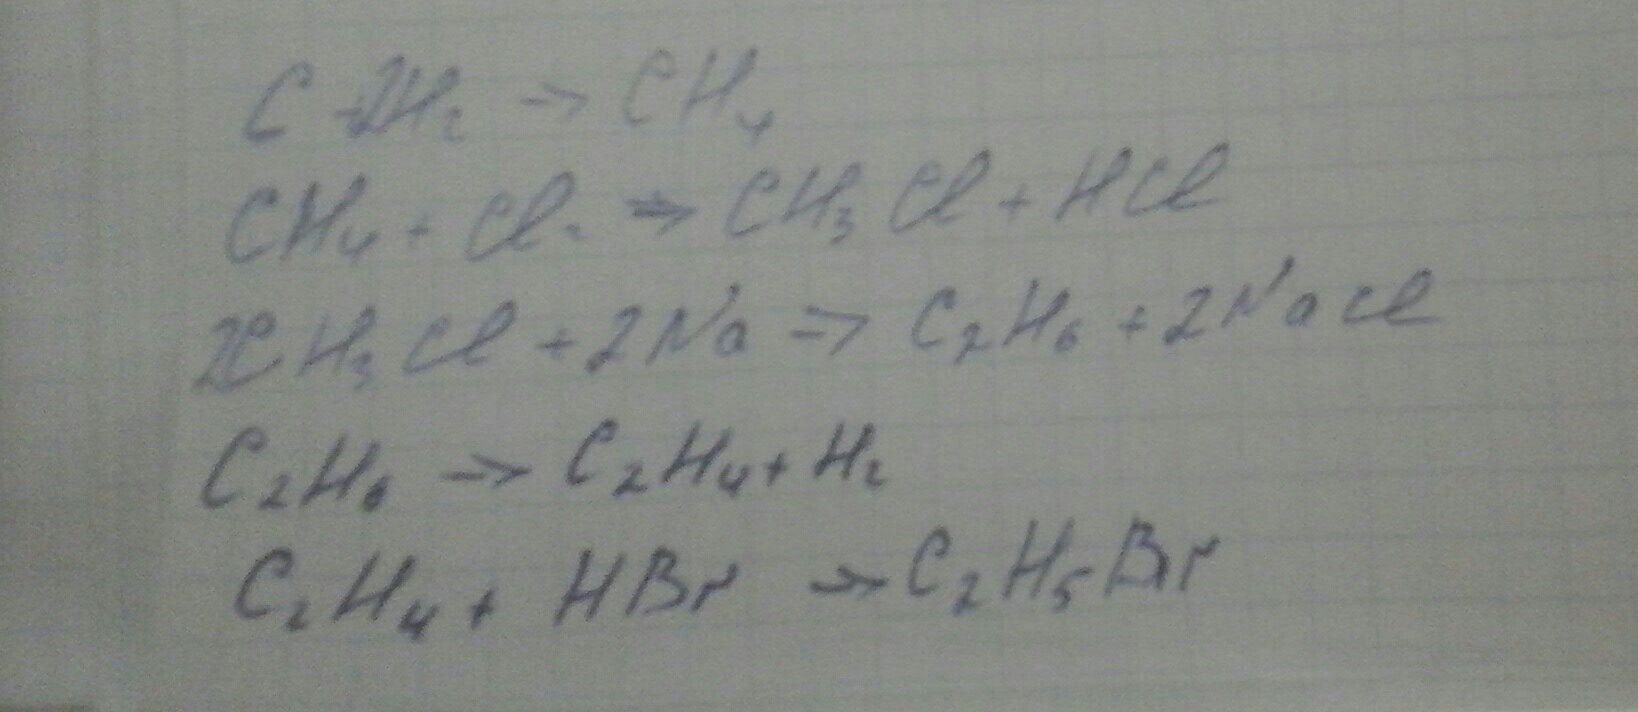 C + 2H₂ → CH₄
CH₄ + Cl₂ → CH₃Cl + HCl
2CH₃Cl + 2Na → C₂H₆ + 2NaCl
C₂H₆ → C₂H₄ + H₂
C₂H₄ + HBr → C₂H₅Br